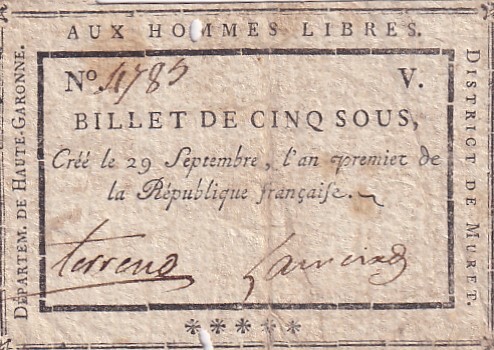 AUX HOMMES LIBRES.
DÉPARTEM. DE HAUTE-GARONNE.
No. 4785 V.
BILLET DE CINQ SOUS,
Créé le 29 Septembre, l'an premier de
la République françaife.
terrens
DISTRICT DE MURET.